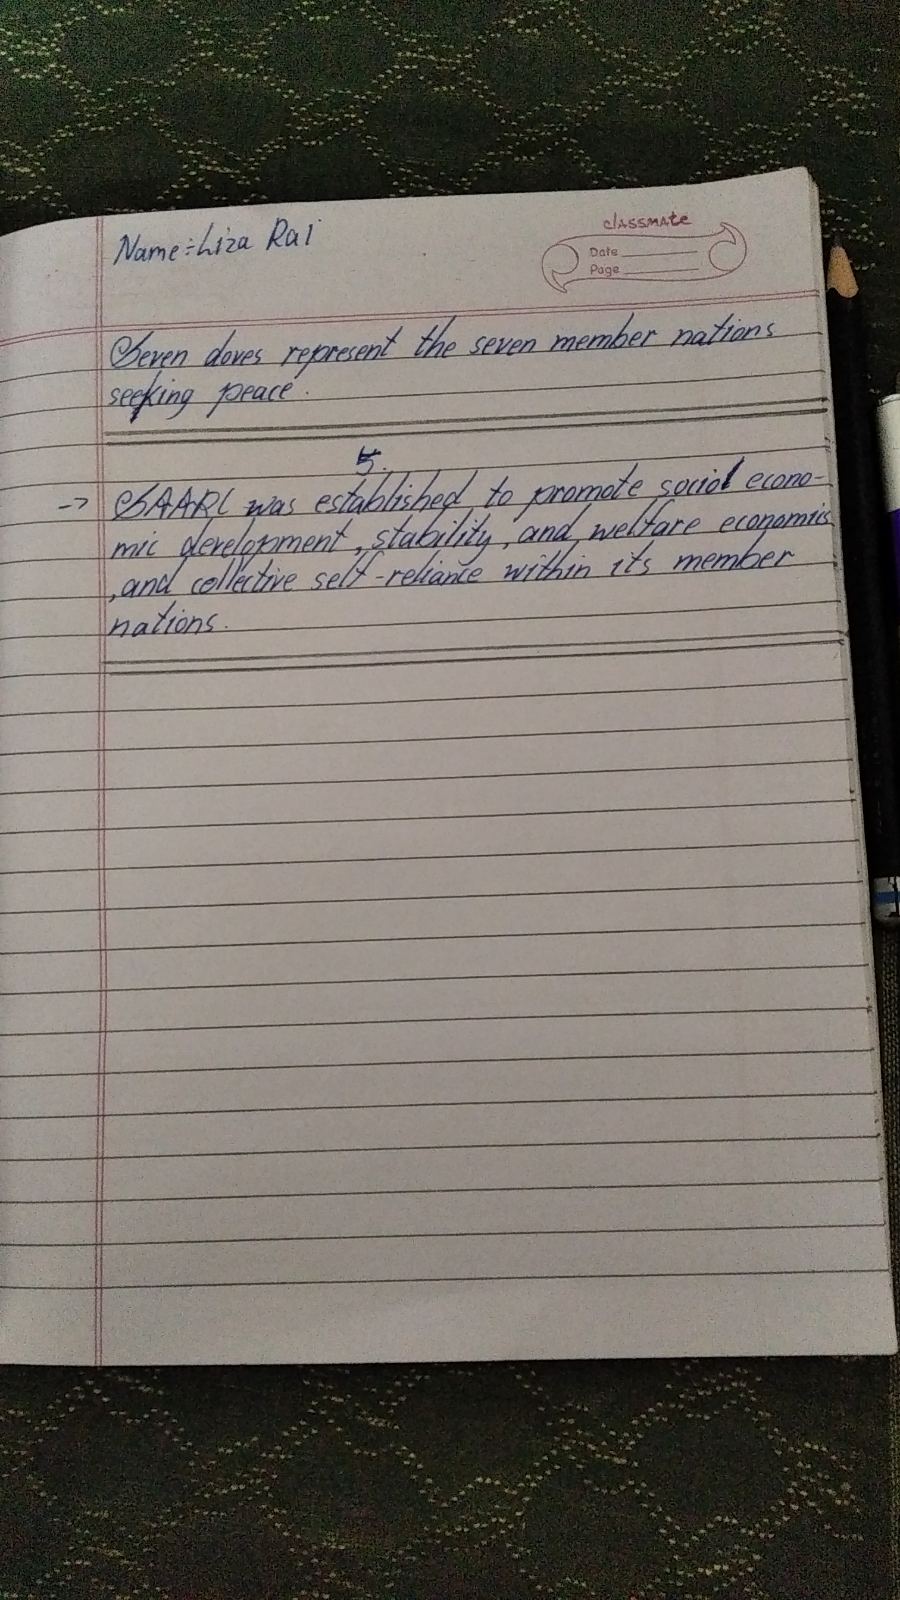 Name:- Liza Rai
classmate
Date
Page
Seven doves represent the seven member nations
seeking peace.
5.
-> SAARC was established, to promote social econo-
mic development, stability, and welfare economics
, and collective self-reliance within its member
nations.